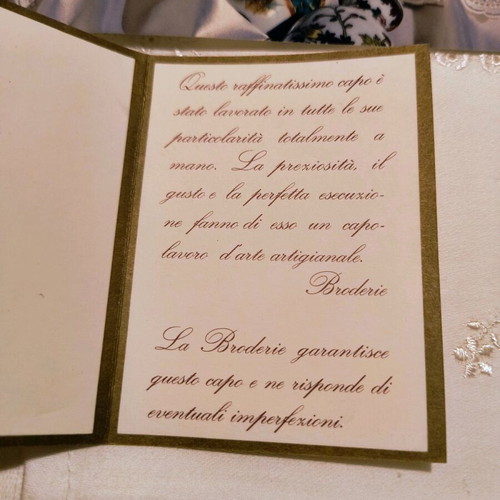 Questo raffinatissimo capo è
stato lavorato in tutte le sue
particolarità totalmente a
mano. La preziosità, il
gusto e la perfetta esecuzio-
ne fanno di esso un capo-
lavoro d'arte artigianale.
Broderie
La Broderie garantisce
questo capo e ne risponde di
eventuali imperfezioni.